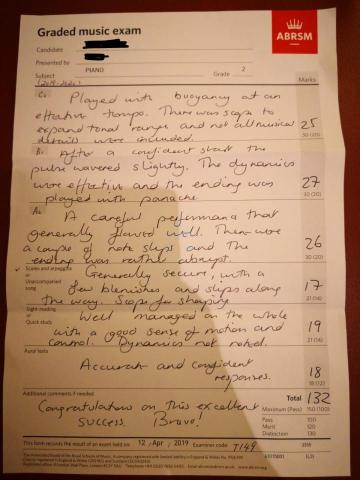 Graded music exam
ABRSM
Candidate
Presented by
Subject PIANO Grade 2
(2019-2020) Marks
C1 Played with buoyancy at an
effective tempo. There was scope to
expand tonal range and not all musical
details were included. 25
30 (20)
B1 After a confident start the
pulse wavered slightly. The dynamics
were effective and the ending was
played with panache. 27
30 (20)
A2 A careful performance that
generally flowed well. There were
a couple of note slips and the
ending was rather abrupt. 26
30 (20)
Scales and arpeggios
or
Unaccompanied
song
Generally secure, with a
few blemishes and slips along
the way. Scope for shaping 17
21 (14)
Sight-reading
or
Quick study
Well managed on the whole
with a good sense of motion and
control. Dynamics not noted. 19
21 (14)
Aural tests
Accurate and confident
responses. 18
18 (12)
Additional comments if needed
Total 132
Congratulations on this excellent
success. Bravo!
Maximum (Pass) 150 (100)
Pass 100
Merit 120
Distinction 130
This form records the result of an exam held on 12/Apr/2019 Examiner code T149